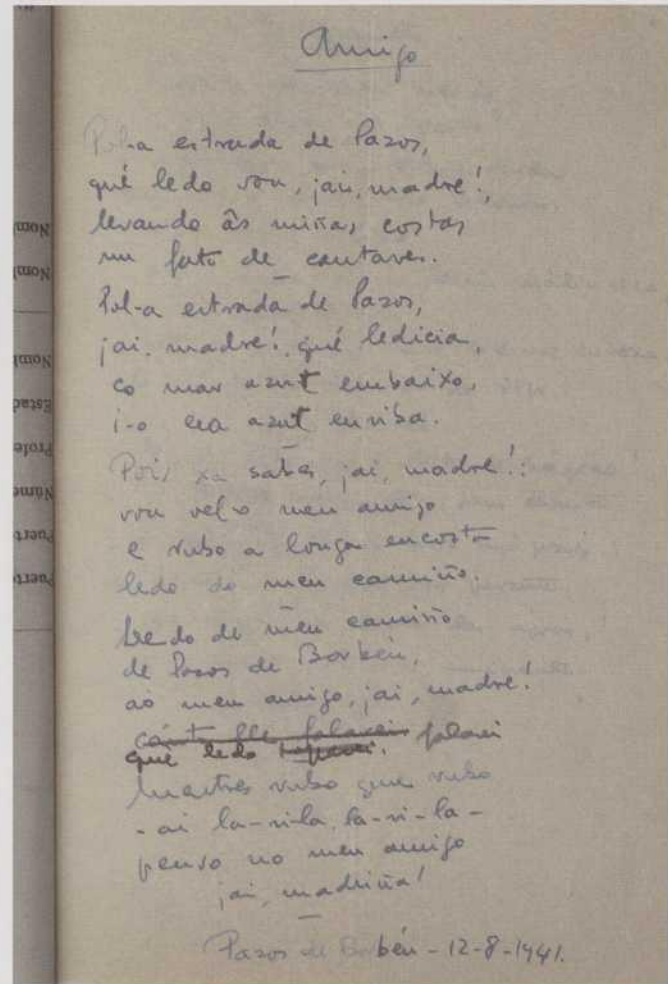 Amigo
Pol-a estrada de Pazos,
qué ledo vou, ¡ai, madre!,
levando ás miñas costas
un fato de cantares.
Pol-a estrada de Pazos,
¡ai, madre!, qué ledicia,
co mar azul embaixo,
i-o ceo azul enriba.
Pois xa sabes, ¡ai, madre!:
vou vel-o meu amigo
e rubo a longa encosta
ledo do meu camiño.
Ledo do meu camiño
de Pazos de Borbén,
ao meu amigo, ¡ai, madre!
cánto lle falarei
que ledo falarei
Mentres rubo que rubo
- ai la-ri-la, la-ri-la -
penso no meu amigo
¡ai, madriña!
Pazos de Borbén - 12-8-1941.
Nom
Nom
Nom
Estad
Profe
Núme
Puert
Puert